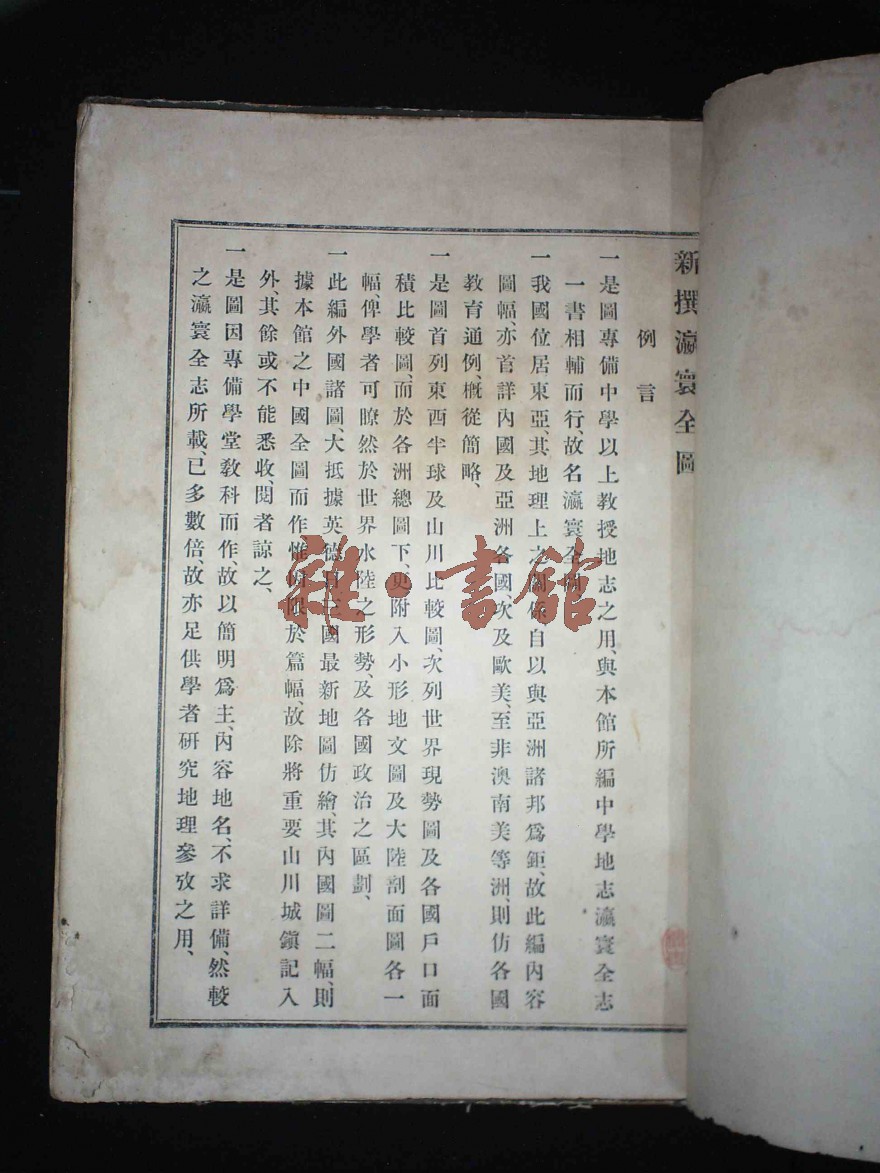 新撰瀛寰全圖
例言
一是圖專備中學以上教授地志之用、與本館所編中學地志瀛寰全志
一書相輔而行、故名瀛寰全圖
一我國位居東亞、其地理上之關係自以與亞洲諸邦爲鉅、故此編內容
圖幅、亦首詳內國及亞洲各國、次及歐美、至非澳南美等洲、則仿各國
教育通例、概從簡略、
一是圖首列東西半球及山川比較圖、次列世界現勢圖及各國戶口面
積比較圖、而於各洲總圖下、更附入小形地文圖及大陸剖面圖各一
幅、俾學者可瞭然於世界水陸之形勢、及各國政治之區劃、
一此編外國諸圖、大抵據英德日三國最新地圖仿繪、其內國圖二幅、則
據本館之中國全圖而作惟限於篇幅、故除將重要山川城鎮記入
外、其餘或不能悉收、閱者諒之、
一是圖因專備學堂教科而作、故以簡明爲主、內容地名、不求詳備、然較
之瀛寰全志所載、已多數倍、故亦足供學者研究地理參攷之用、
雜·書館